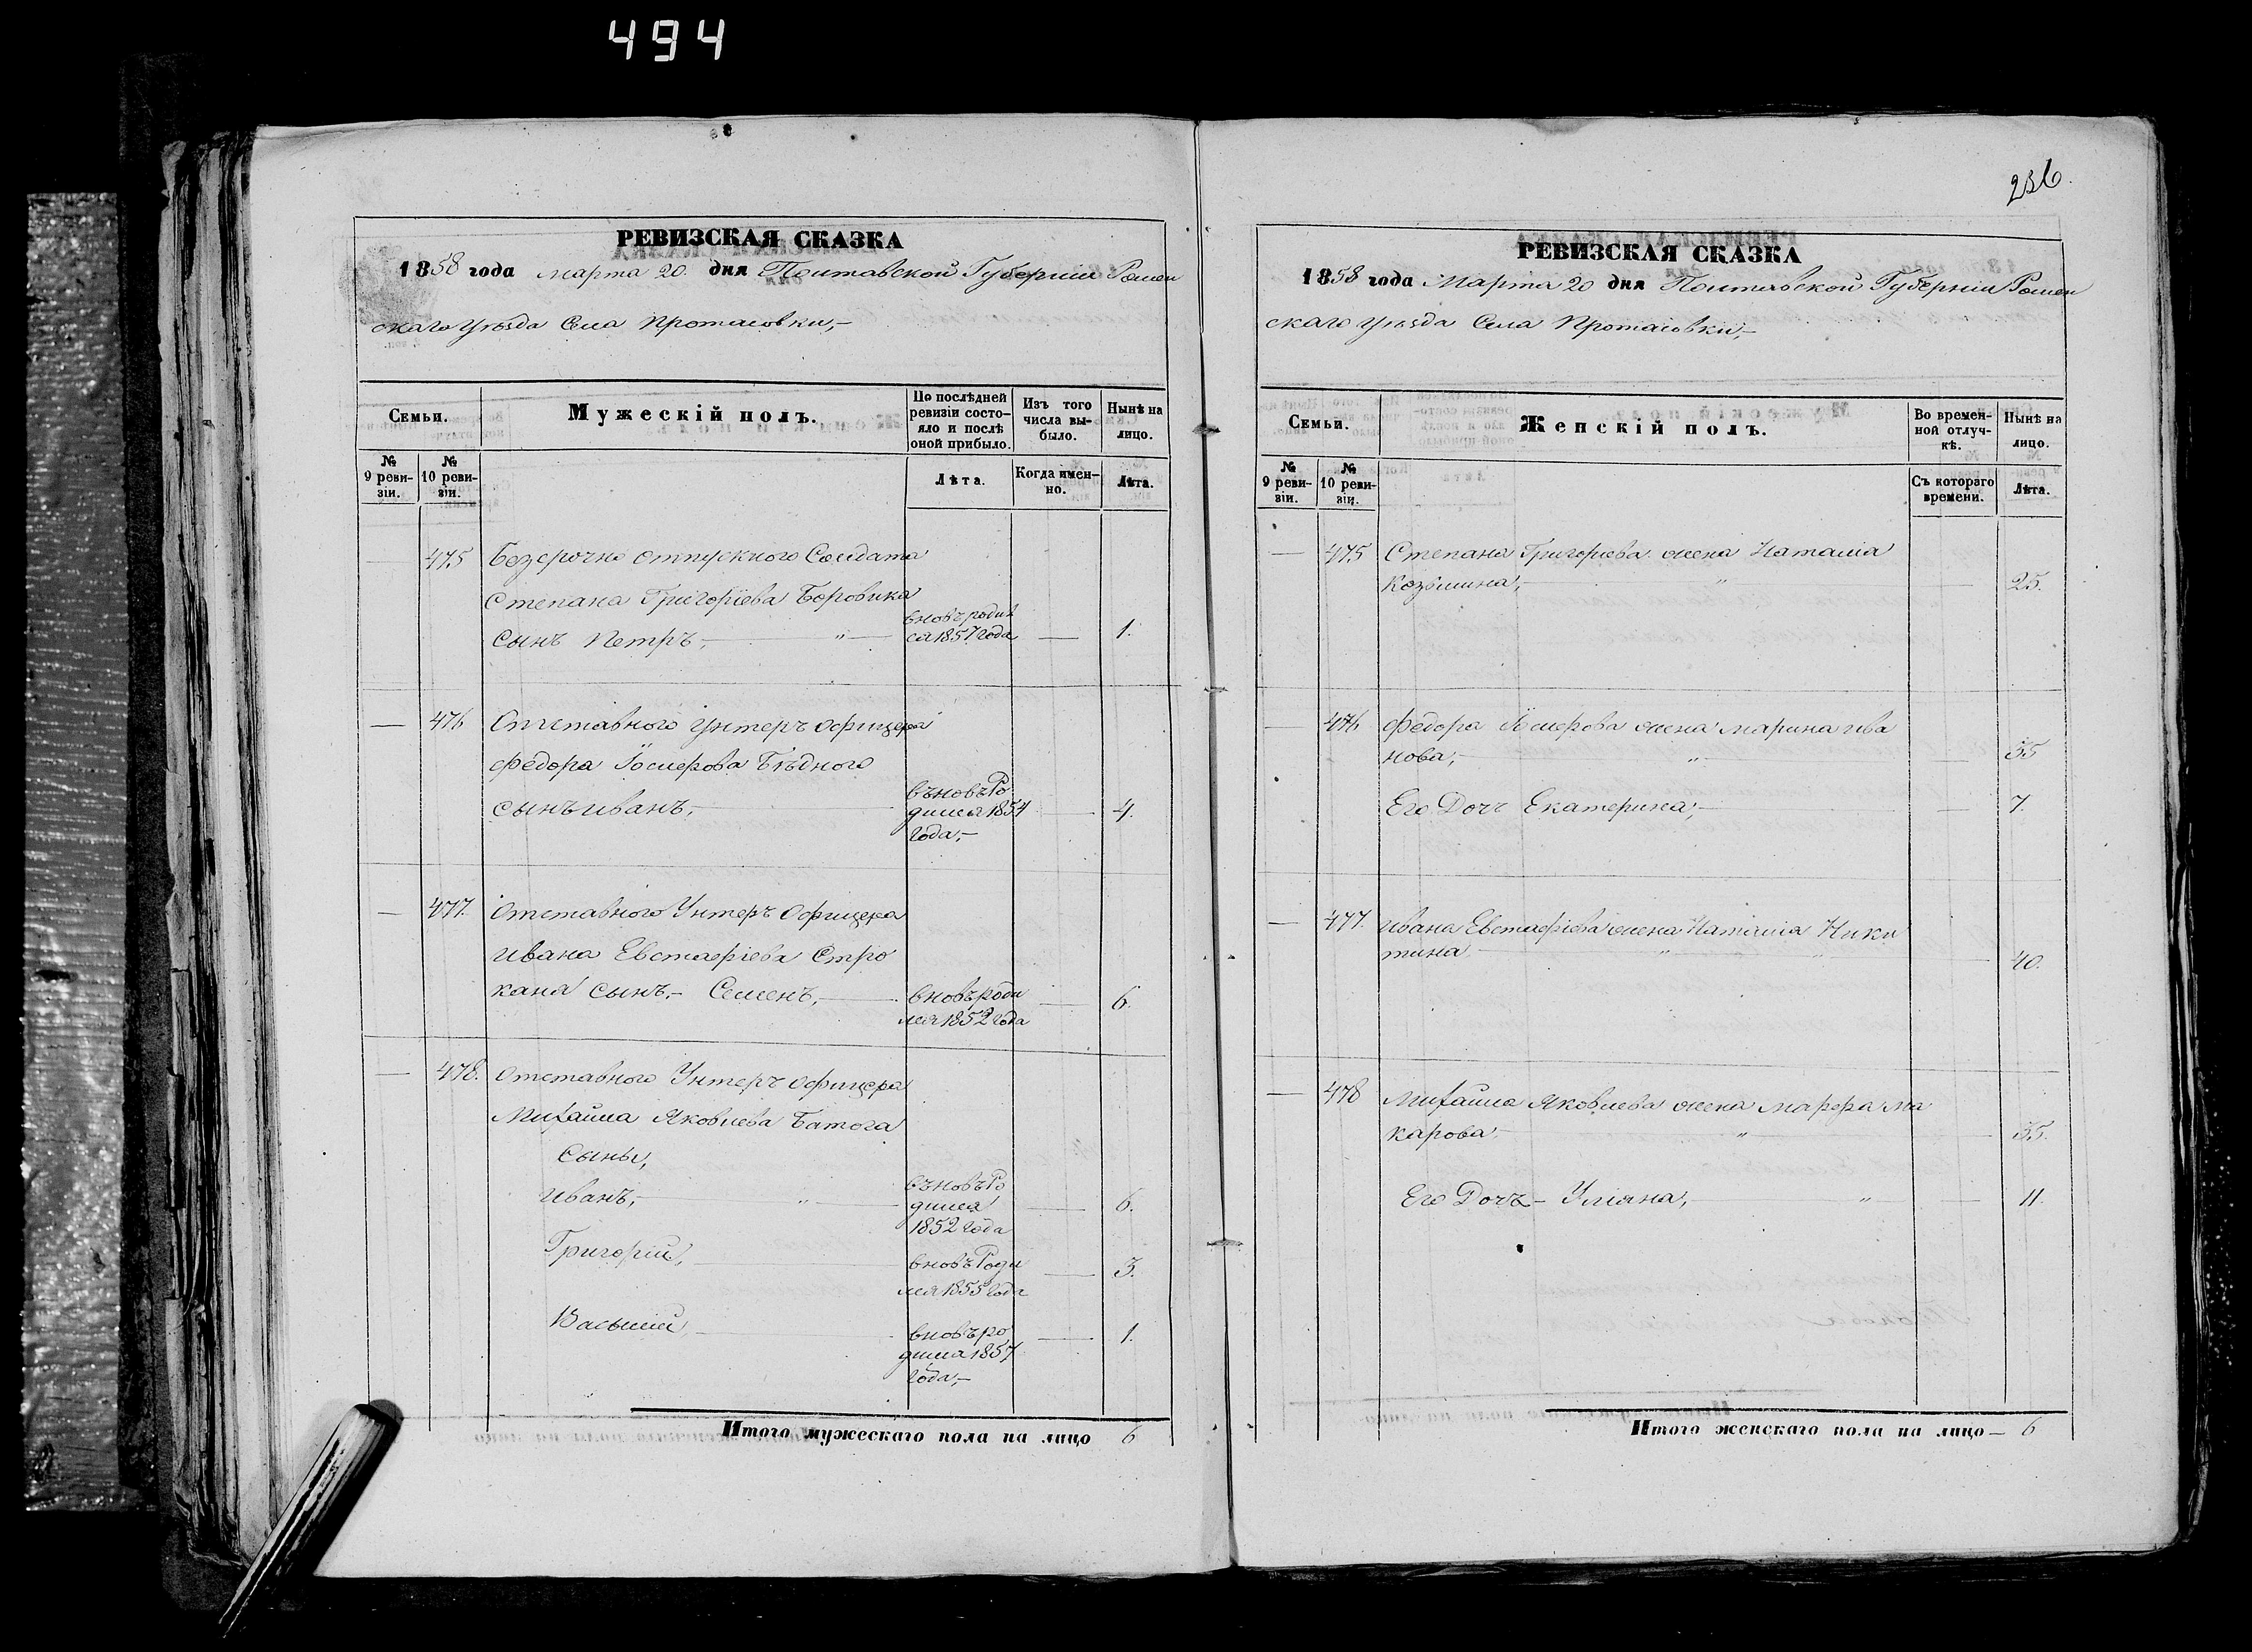 494
236.
РЕВИЗСКАЯ СКАЗКА
1858 года марта 20. дня Полтавской Губерніи Ромен
скаго уѣзда Села Протасовки,-
Семьи.
Мужескій полъ.
По послѣдней ревизіи состо-
яло и послѣ оной прибыло.
Изъ того числа вы-
было.
Нынѣ на лицо.
№ 9 реви-
зіи.
№ 10 реви-
зіи.
Лѣта.
Когда имен-
но.
Лѣта.
— 475 Безсрочно отпускного Солдата
Степана Григоріева Боровика
сынъ Петръ,- " — вновь родил
ся 1857 года — 1.
— 476 Отставного унтеръ офицера
Федора Іосифова Бѣднаго
сынъ иванъ,- въновь Ро
дился 1854 — 4.
года,-
— 477. Отставного Унтеръ Офицера
ивана Евстафіева Стро
кана сынъ,- Семенъ,- вновь роди — 6.
лся 1852 года
— 478. Отставного Унтеръ офицера
Михайла Яковлева Батога
Сыны,
иванъ,- " — въновь Ро
дился — 6.
1852 года
Григорій, вновь Роди — 3.
лся 1855 года
Василій вновь ро — 1.
дился 1857
года,-
Итого мужескаго пола на лицо 6
РЕВИЗСКАЯ СКАЗКА
1858 года Марта 20 дня Полтавской Губерніи Ромен
скаго уѣзда Села Протасовки,-
Семьи.
Женскій полъ.
Во времен-
ной отлуч-
кѣ.
Нынѣ на лицо.
№ 9 реви-
зіи.
№ 10 реви-
зіи.
Съ котораго времени.
Лѣта.
— 475 Степана Григорьева жена Наталія
Козьмина,- " — 25.
— 476 Федора Іосифова жена марина ива
нова,- " — 35
Его Дочь Екатерина,- — 7.
— 477. ивана Евстафіева жена Наталія Ники
тина " " — 40.
— 478 Михайла Яковлева жена марфа Ма
карова " — 35.
Его Дочь - Уліяна, " — 11.
Итого женскаго пола на лицо — 6